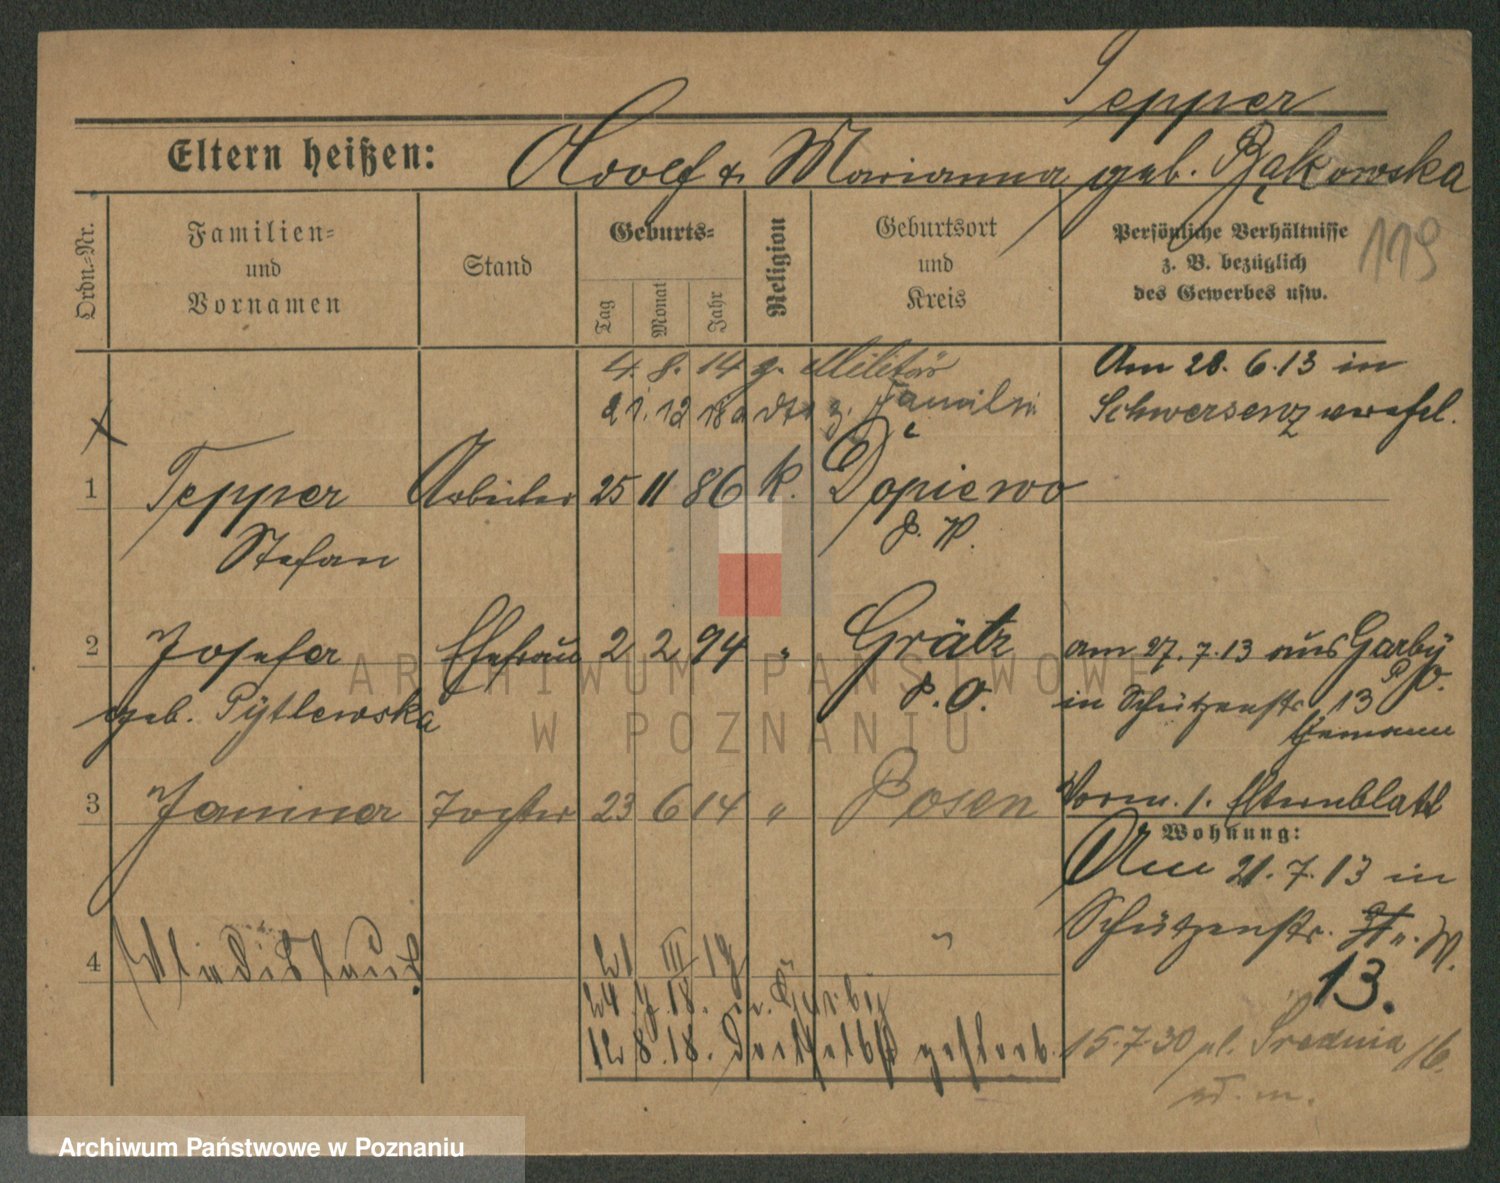 Tepper
Eltern heißen: Adolf & Marianna geb. Bąkowska
119
Ordn.-Nr.
Familien- und Vornamen
Stand
Geburts-
Tag
Monat
Jahr
Religion
Geburtsort und Kreis
Persönliche Verhältnisse
z. B. bezüglich
des Gewerbes usw.
4. 8. 14 z. Militär
21. 12 18 a dto z. Familie
Am 28. 6. 13 in
Schwersenz verehel.
1 Tepper Arbeiter 25 11 86 k. Dopiewo
Stefan P. W.
2 Josefa Ehefrau 2 2 94 " Grätz
geb. Pytlewska P. O.
am 27. 7. 13 aus Garby
P. O.
in Schützenstr. 13
3 Janina Tochter 23 6 14 " Posen
Vorm. s. Elternblatt
Wohnung:
Am 21. 7. 13 in
Schützenstr. W.
13.
4 Wladislaus 21 III 18 "
24. 7. 18. n. Garby
12 8. 18. daselbst gestorb.
15.7.30 pl. Średnia 16.
ARCHIWUM PAŃSTWOWE
W POZNANIU
Archiwum Państwowe w Poznaniu